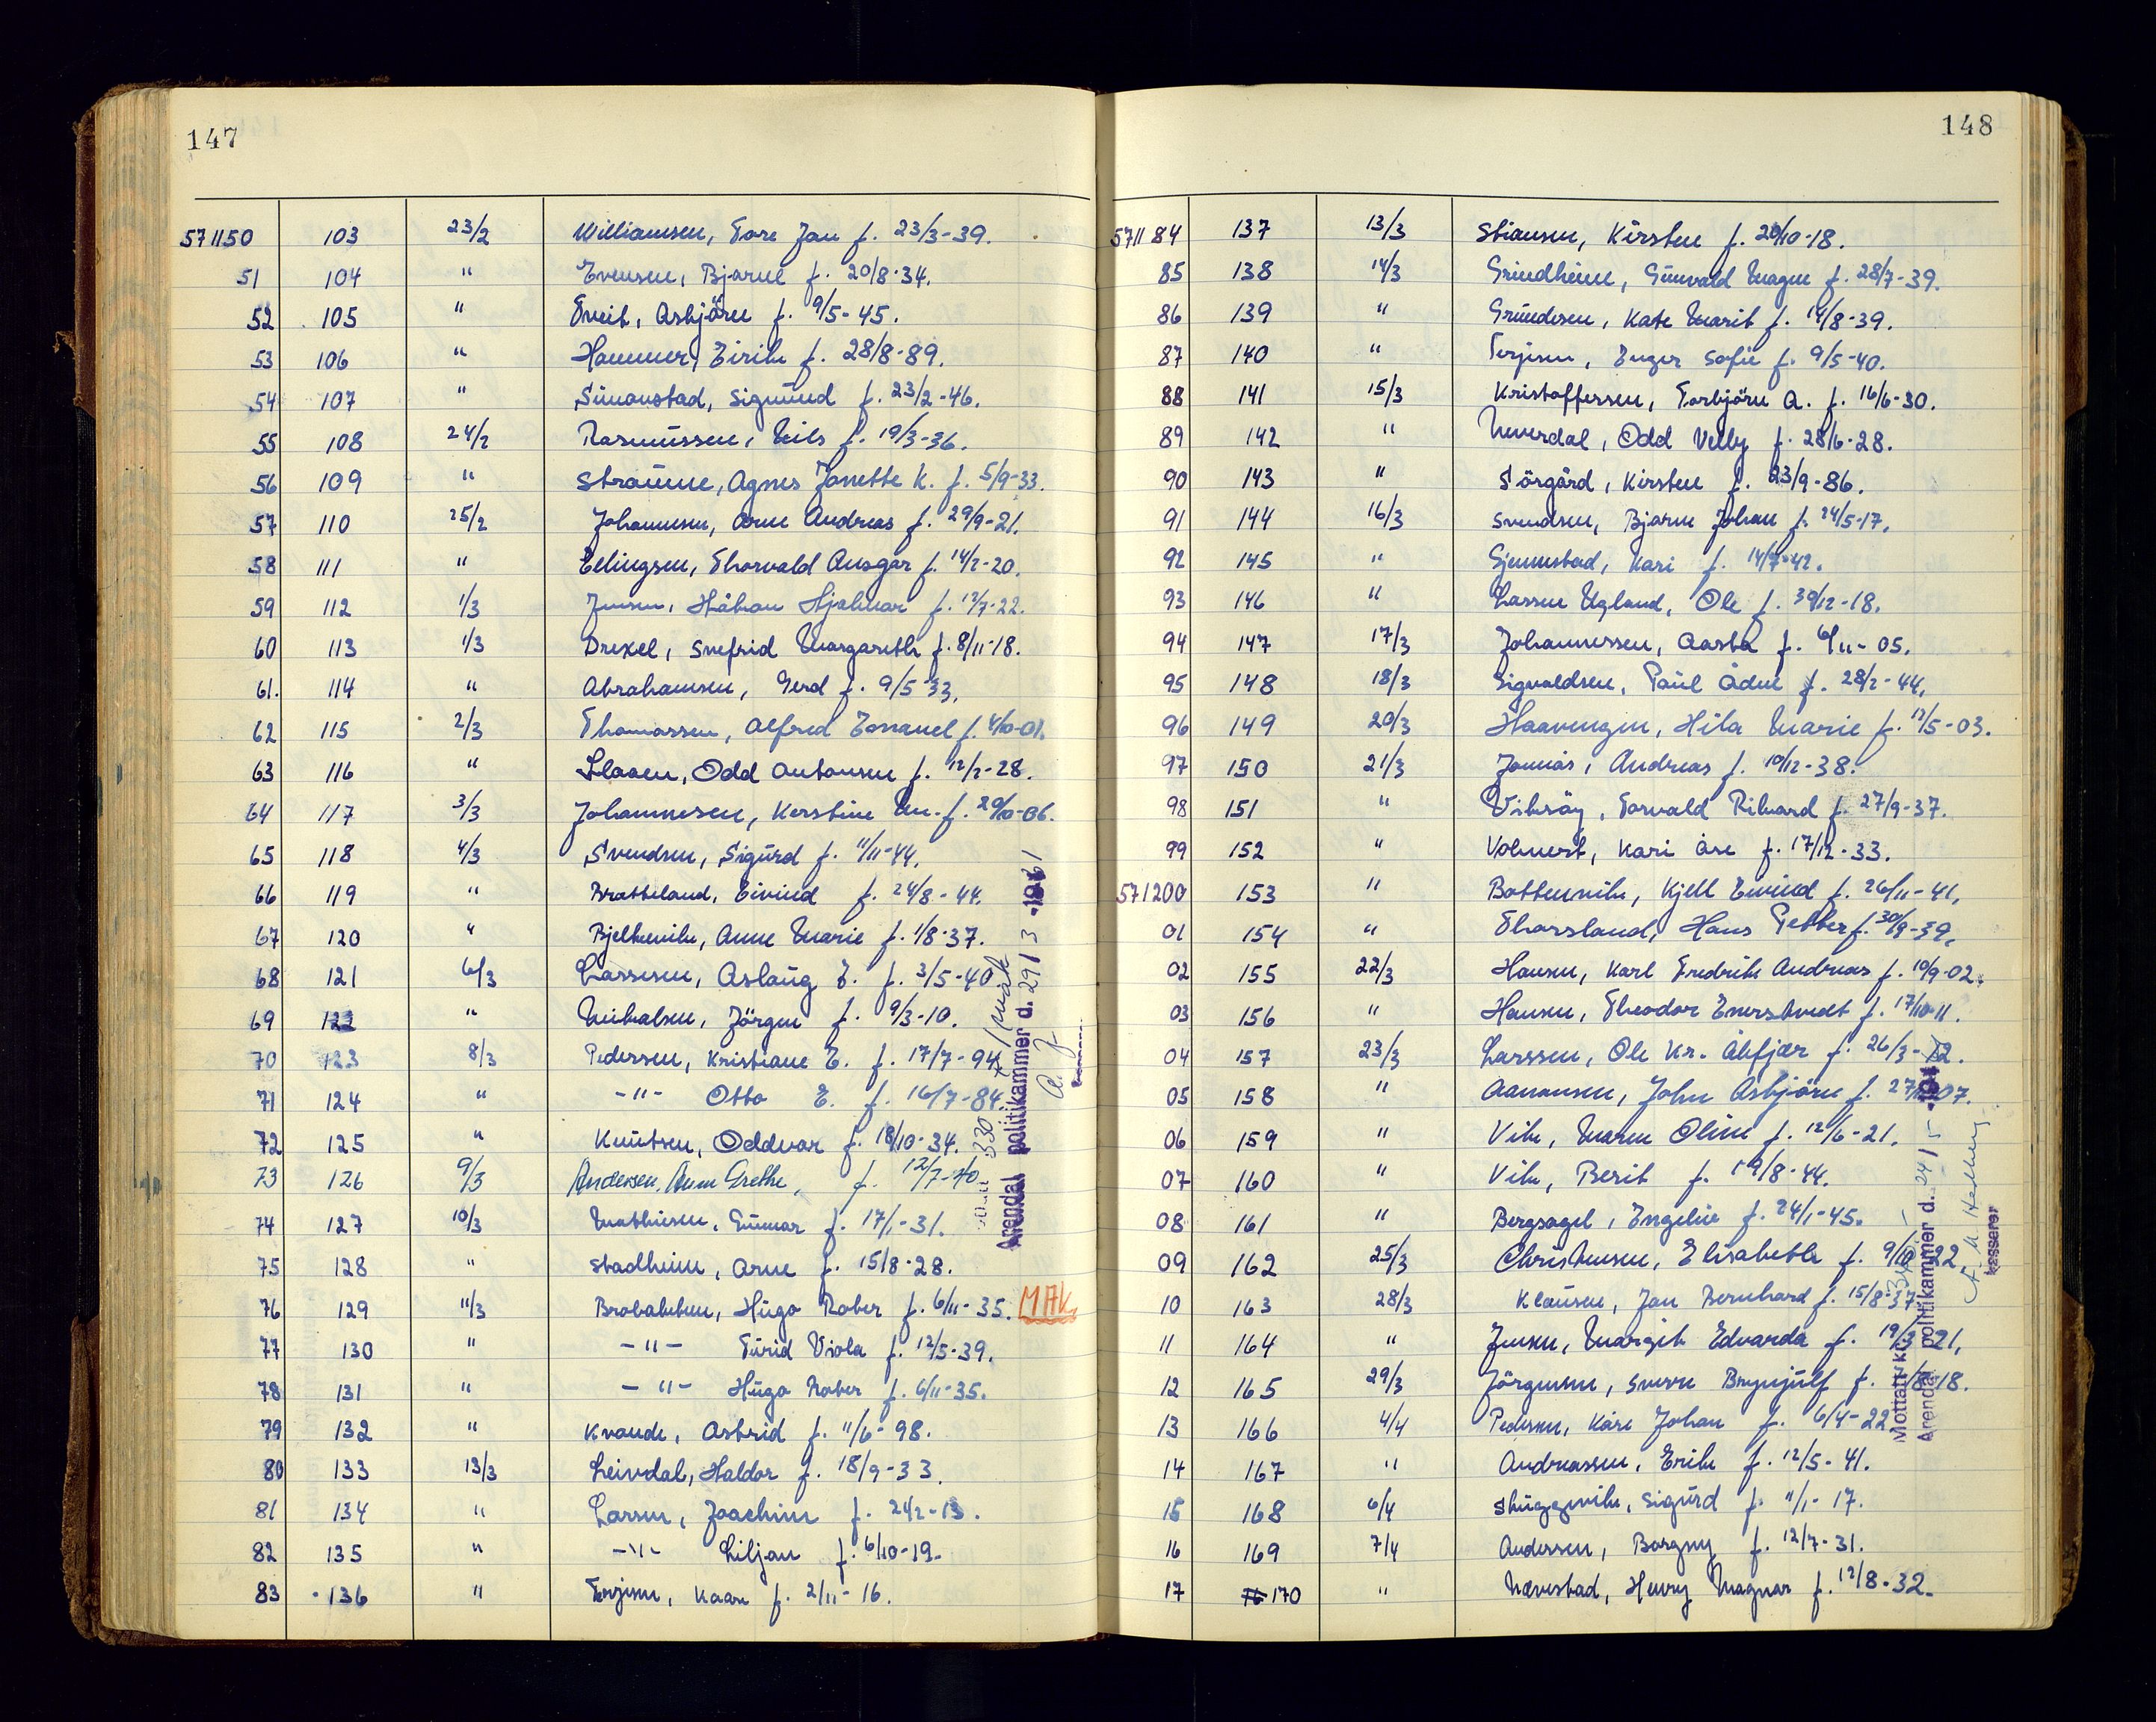 147
571150 103 23/2 Williamsen, Tore Jan f. 23/3-39.
51 104 " Evensen, Bjarne f. 20/8-34.
52 105 " Tveit, Asbjörn f. 9/5-45.
53 106 " Hammer, Eirik f. 28/8-89.
54 107 " Simonstad, Sigmund f. 23/2-46.
55 108 24/2 Rasmussen, Nils f. 19/3-36.
56 109 " Straume, Agnes Janette K. f. 5/9-33.
57 110 25/2 Johannsen, Arne Andreas f. 29/9-21.
58 111 " Ellingsen, Thorvald Ansgar f. 14/2-20.
59 112 1/3 Jensen, Håkon Hjalmar f. 12/7-22.
60 113 1/3 Drexel, Snefrid Margareth f. 8/11-18.
61. 114 " Abrahamsen, Gerd f. 9/5-33.
62 115 2/3 Thomassen, Alfred Emanuel f. 4/10-01.
63 116 " Slaaen, Odd Antonsen f. 12/2-28.
64 117 3/3 Johannesen, Kerstine M. f. 20/10-06.
65 118 4/3 Svendsen, Sigurd f. 11/11-44.
66 119 " Bratteland, Eivind f. 24/8-44.
67 120 " Bjelkevik, Anne Marie f. 1/8-37.
68 121 6/3 Lassesen, Aslaug E. f. 3/5-40
69 122 " Mikalsen, Jörgen f. 9/3-10.
70 123 8/3 Pedersen, Kristiane E. f. 17/7-94
71 124 " -"- Otto E. f. 16/7-84.
72 125 " Knutsen, Oddvar f. 18/10-34.
73 126 9/3 Andersen, Anne Grethe, f. 12/7-40
74 127 10/3 Mathisen, Gunnar f. 17/1-31.
75 128 " Stadheim, Arne f. 15/8-28.
76 129 11/3 Brobakken, Hugo Rober f. 6/11-35. MAK.
77 130 " -"- Turid Viola f. 12/5-39.
78 131 " -"- Hugo Rober f. 6/11-35.
79 132 " Knaude, Astrid f. 11/6-98.
80 133 13/3 Leivdal, Haldor f. 18/9-33.
81 134 " Larsen, Joachim f. 24/2-13.
82 135 " -"- Liljan f. 6/10-19.
83 136 " Terjesen, Kaare f. 2/11-16.
Arendal politikammer d. 29/3-1961
148
571184 137 13/3 Stiansen, Kirsten f. 20/10-18.
85 138 14/3 Grindheim, Gunvald Magne f. 28/7-39.
86 139 " Grundesen, Kate Marit f. 14/8-39.
87 140 " Terjesen, Inger Sofie f. 9/5-40.
88 141 15/3 Kristoffersen, Torbjörn A. f. 16/6-30.
89 142 " Neverdal, Odd Velly f. 28/6-28.
90 143 " Sörgård, Kirsten f. 23/9-86.
91 144 16/3 Svendsen, Bjarne Johan f. 24/5-17.
92 145 " Gjennestad, Kari f. 14/7-42.
93 146 " Lassen Ugland, Ole f. 30/12-18.
94 147 17/3 Johannessen, Aasta f. 6/11-05.
95 148 18/3 Sigvaldsen, Paul Ådne f. 28/2-44.
96 149 20/3 Haavengen, Hila Marie f. 12/5-03.
97 150 21/3 Jomås, Andreas f. 10/12-38.
98 151 " Viksöy, Torvald Rikard f. 27/9-37.
99 152 " Volnert, Kari Åse f. 17/12-33.
571200 153 " Bottenvik, Kjell Eivind f. 26/11-41.
01 154 " Thorsland, Hans Petter f. 30/9-39.
02 155 22/3 Hansen, Karl Fredrik Andreas f. 10/9-02.
03 156 " Hansen, Theodor Enerstvedt f. 17/10-11.
04 157 23/3 Larssen, Ole Kr. Åkfjær f. 26/3-12.
05 158 " Aanonsen, John Asbjörn f. 27/
06 159 " Vik, Maren Oline f. 12/6-21.
07 160 " Vik, Berit f. 19/8-44.
08 161 " Bergsagel, Engeline f. 24/1-45.
09 162 25/3 Christensen, Elisabeth f. 9/10-22.
10 163 28/3 Klausen, Jan Bernhard f. 15/8-37
11 164 " Jensen, Margit Edvarda f. 19/3-21.
12 165 29/3 Jörgensen, Sverre Brynjulf f. /8-18.
13 166 4/4 Pedersen, Kåre Johan f. 6/4-22
14 167 " Andreassen, Erik f. 12/5-41.
15 168 6/4 Skuggevik, Sigurd f. 11/1-17.
16 169 7/4 Andersen, Borgny f. 12/7-31.
17 170 " Nævestad, Henry Magnar f. 12/8-32.
Mottatt kr.
Arendal politikammer d. 24/5
kasserer